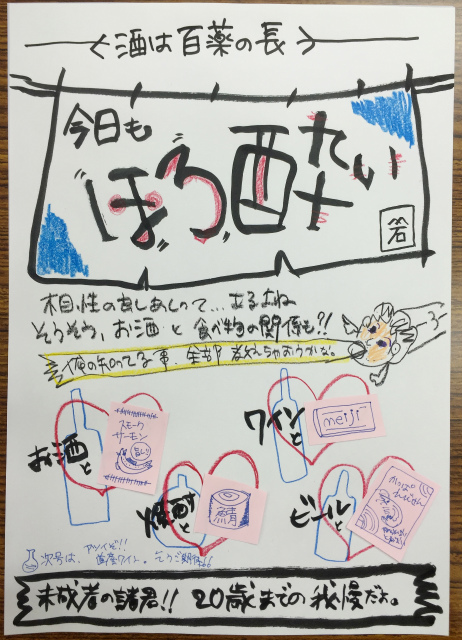 酒は百薬の長
今日も
ほろ酔たい
相性のあしあしって…あるよね
そうそう、お酒と食べ物の関係も?!
俺の知ってる事、全部教えちゃおうかな。
お酒と
スモーク
サーモン
ワインと
meiji
焼酎と
鯖
ビールと
アツイぞ!!
次号は、
未成者の諸君!! 20歳までの我慢だよ。